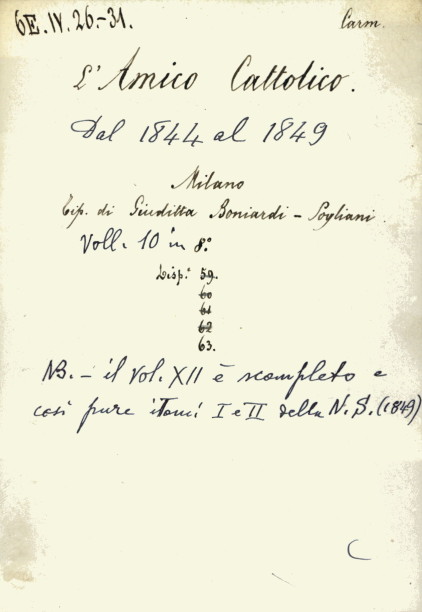 6E.IV.26-31. Carm.
L'Amico Cattolico.
Dal 1844 al 1849
Milano
Tip. di Giuditta Boniardi - Pogliani.
Voll. 10 in 8º
Disp.ª 59.
60
61
62
63.
NB. - il vol. XII è scompleto e
così pure i tomi I e II della N.S. (1849)